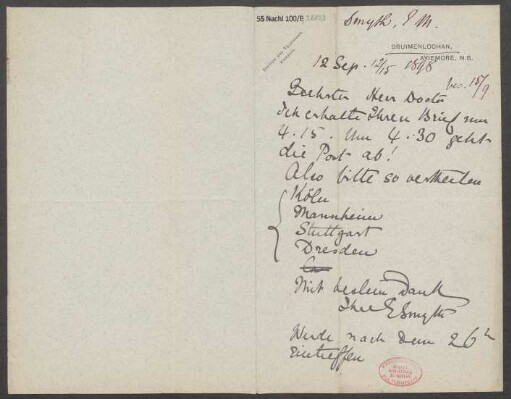 55 Nachl 100/B
Smyth, E M.
DRUIMENLOCHAN,
AVIEMORE, N.B.
12 Sep. 1898
bes. 15/9
Geehrter Herr Doctor
Ich erhalte Ihren Brief um
4.15. Um 4.30 geht
die Post ab!
Also bitte so vertheilen
Köln
Mannheim
Stuttgart
Dresden
Mit bestem Dank
Ihre E Smyth
Werde nach dem 26
eintreffen